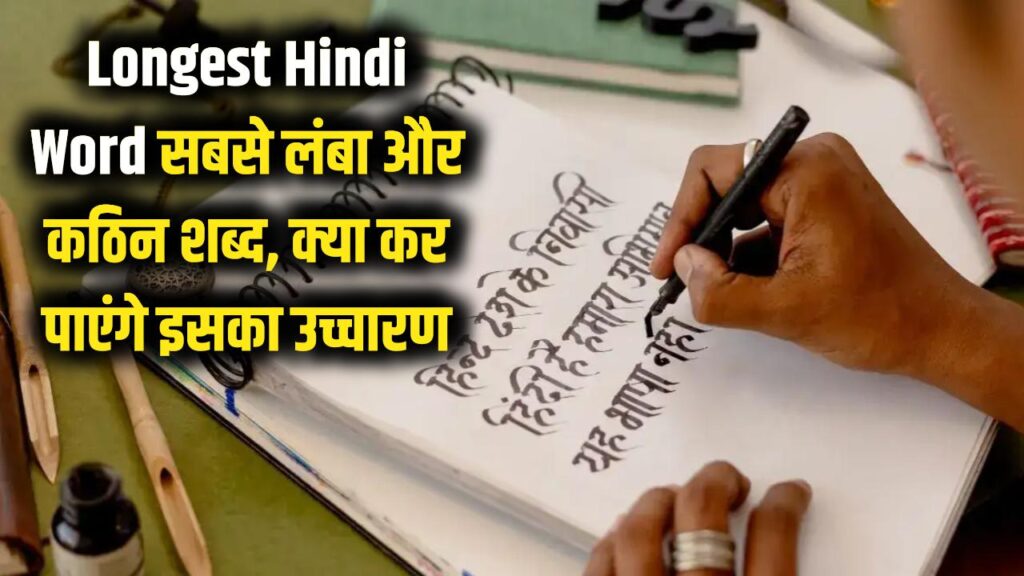 Longest Hindi
Word सबसे लंबा और
कठिन शब्द, क्या कर
पाएंगे इसका उच्चारण
हिन्द देश के निवासी
हिंदी है हमारा अभिमान
यह भाषा नही